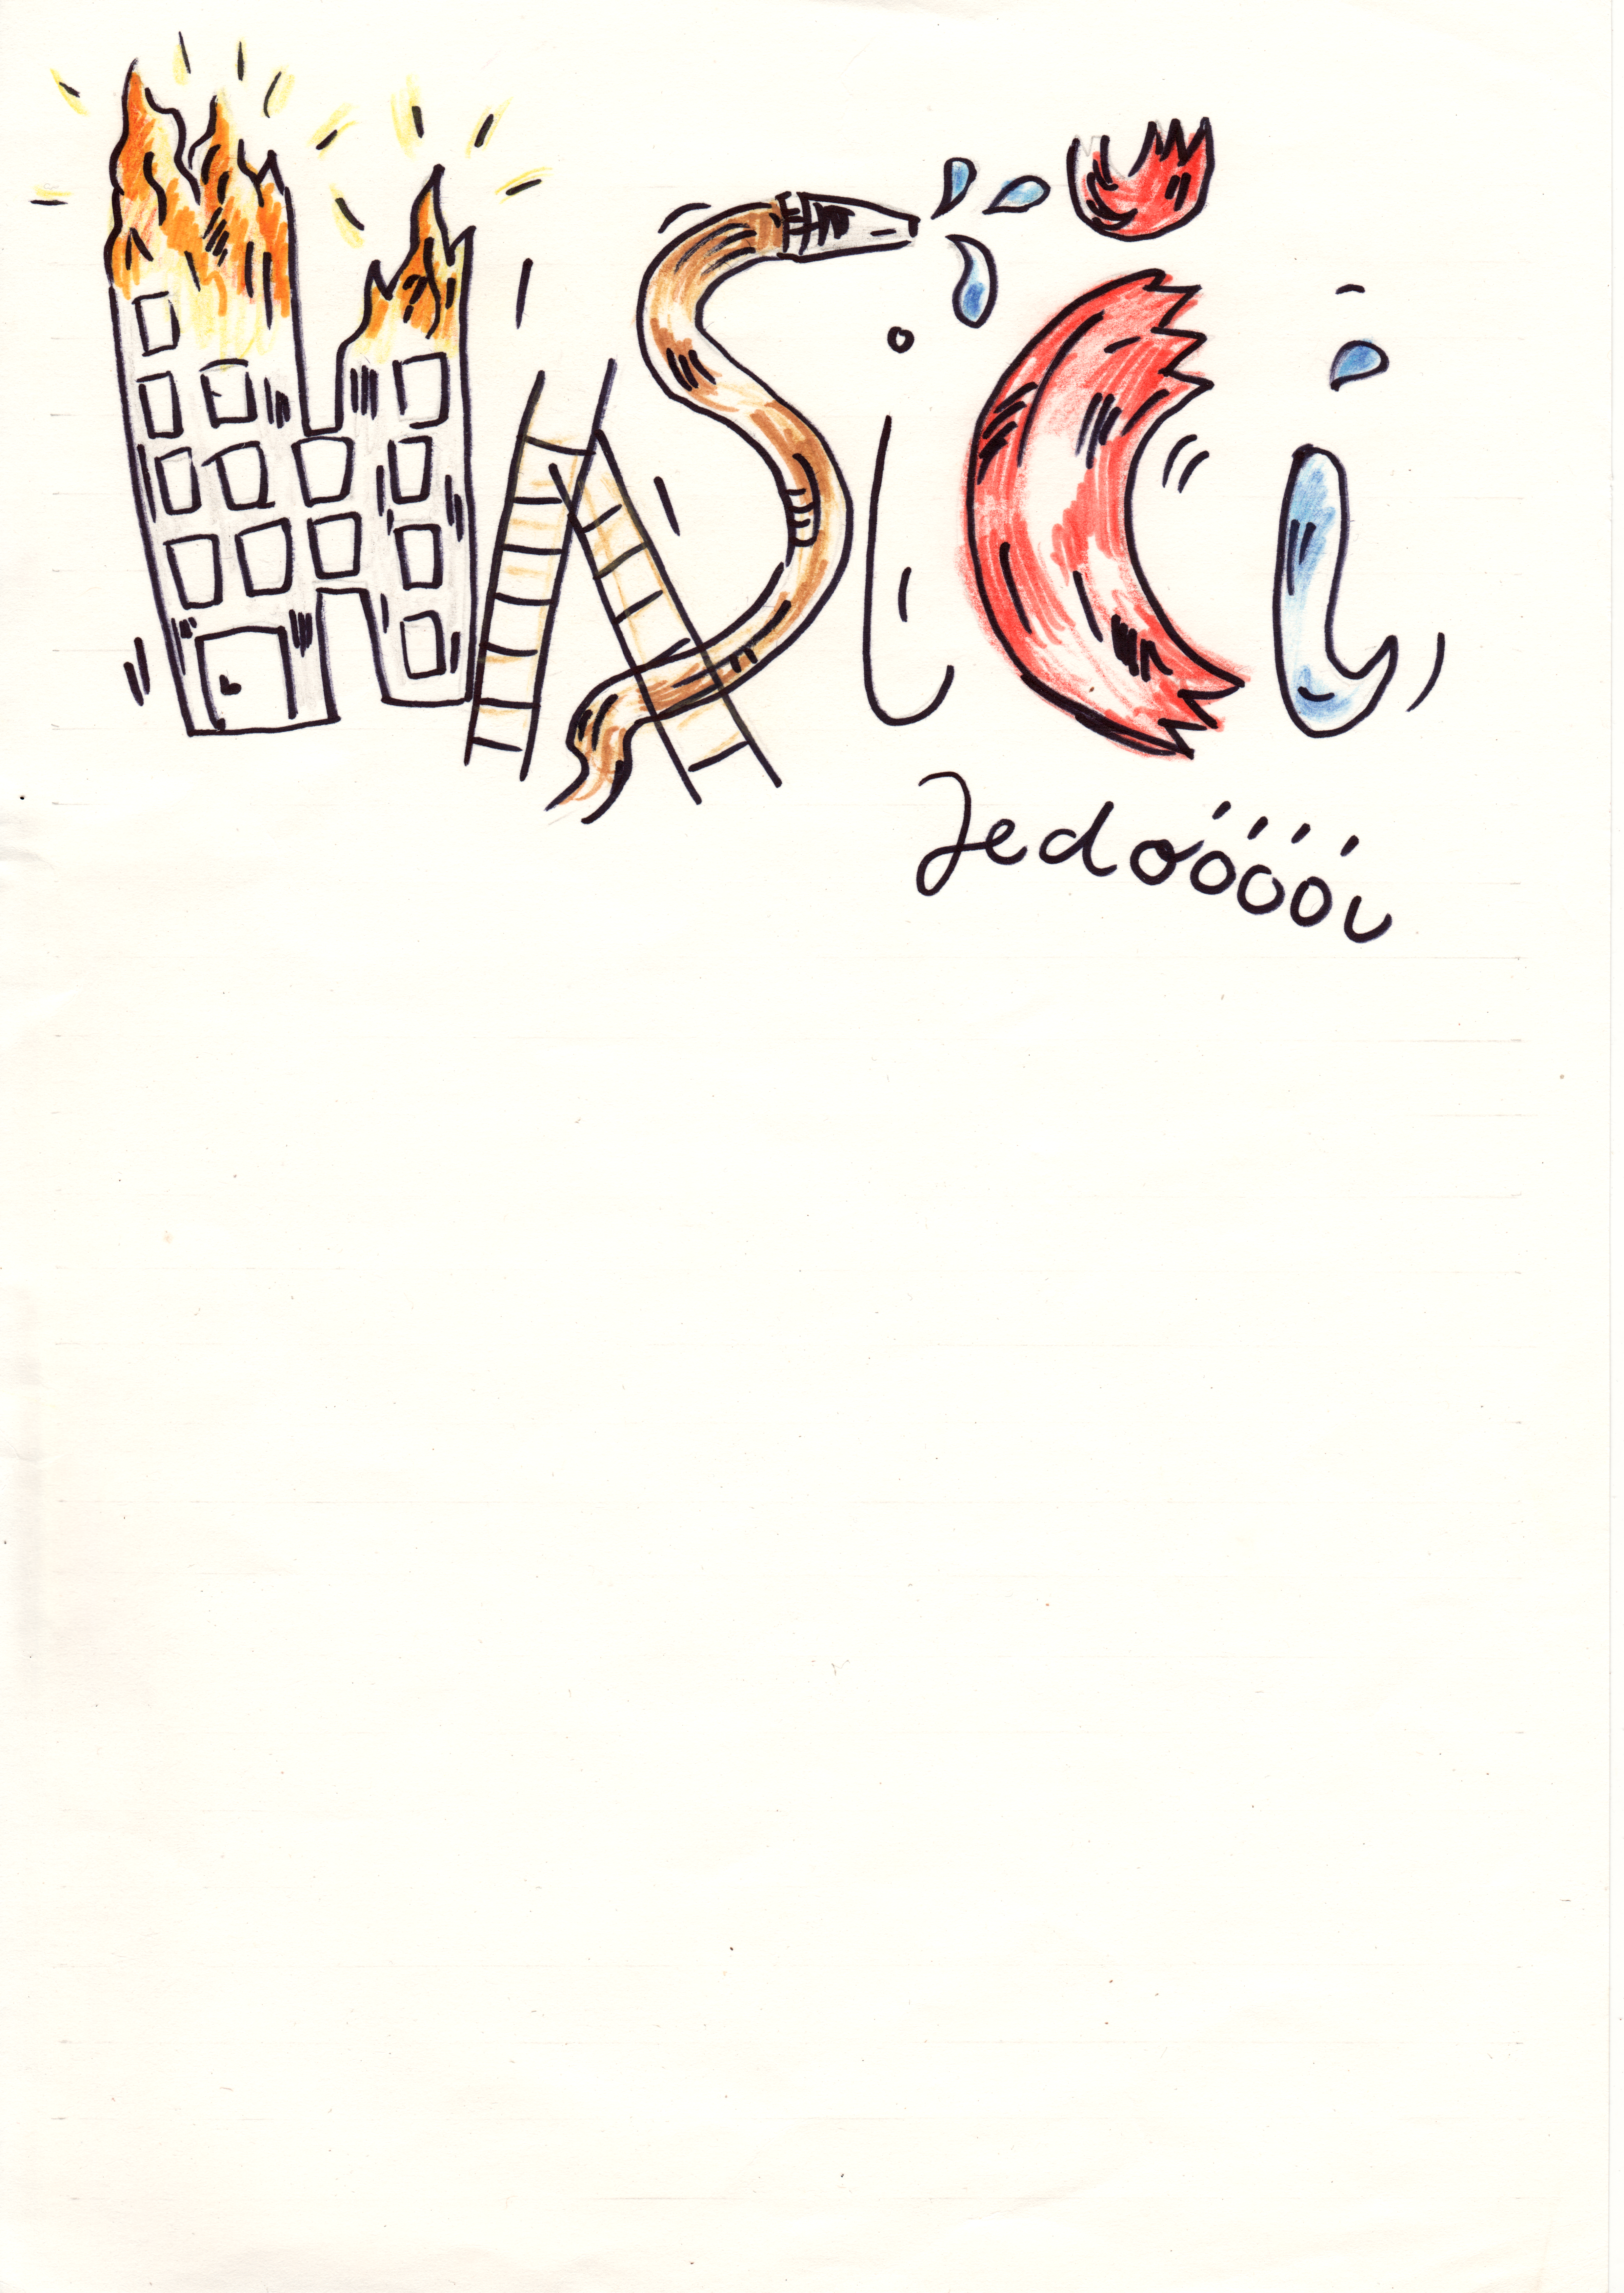 HASiČi
Jedoóóói